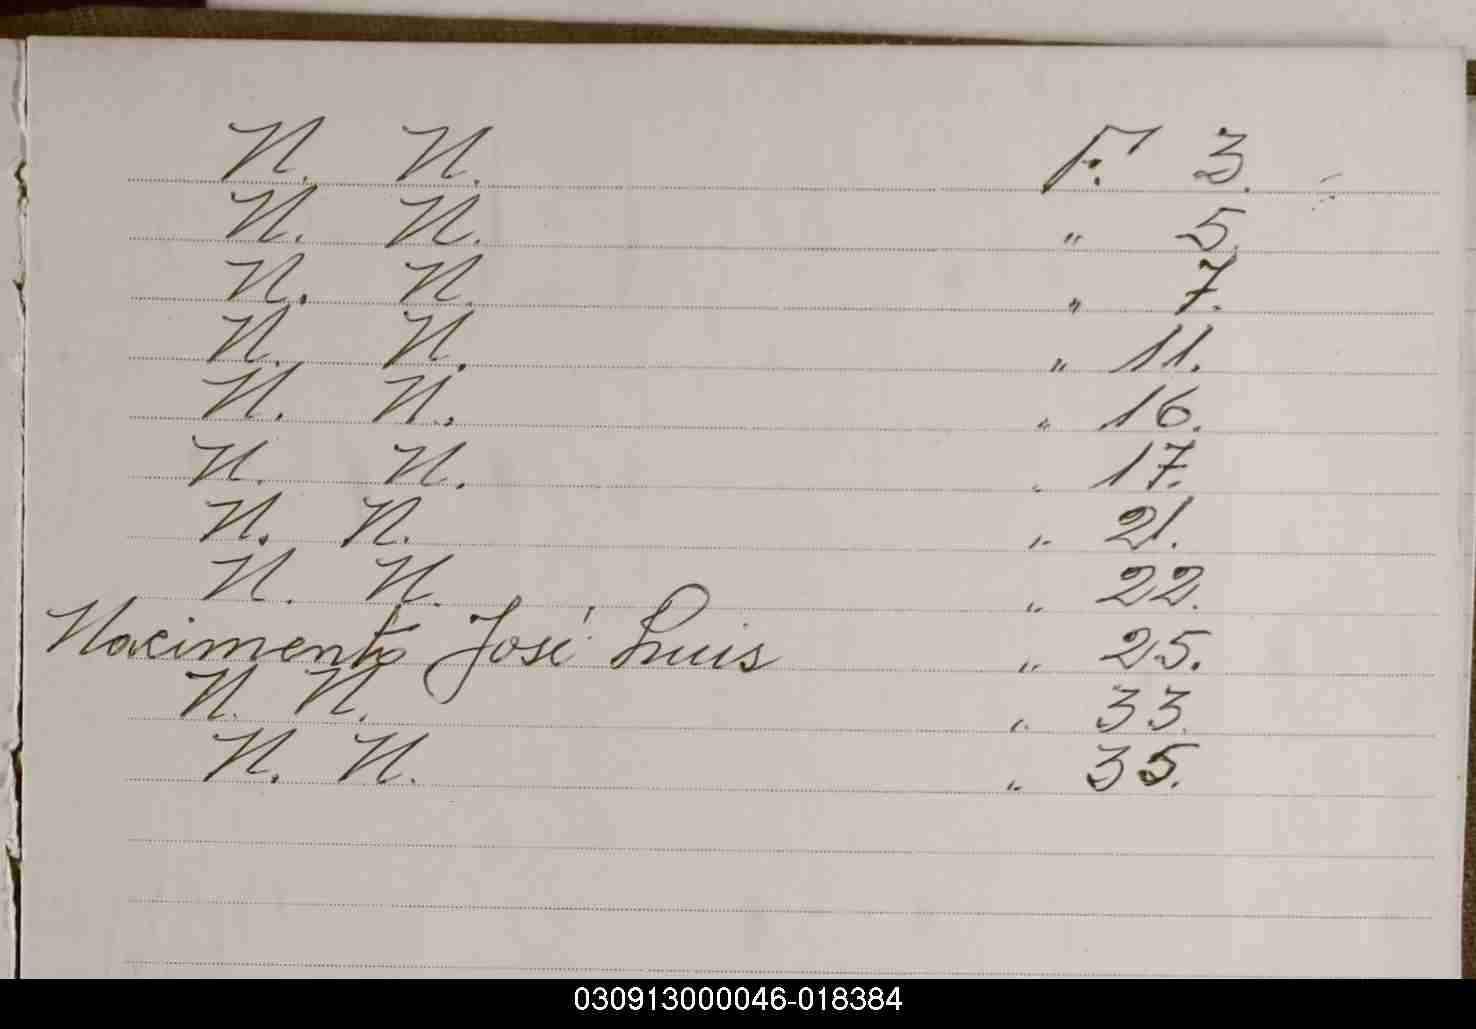 N. N. F. 3.
N. N. " 5.
N. N. " 7.
N. N. " 11.
N. N. " 16.
N. N. " 17.
N. N. " 21.
N. N. " 22.
Nacimento José Luis " 25.
N. N. " 33.
N. N. " 35.
030913000046-018384